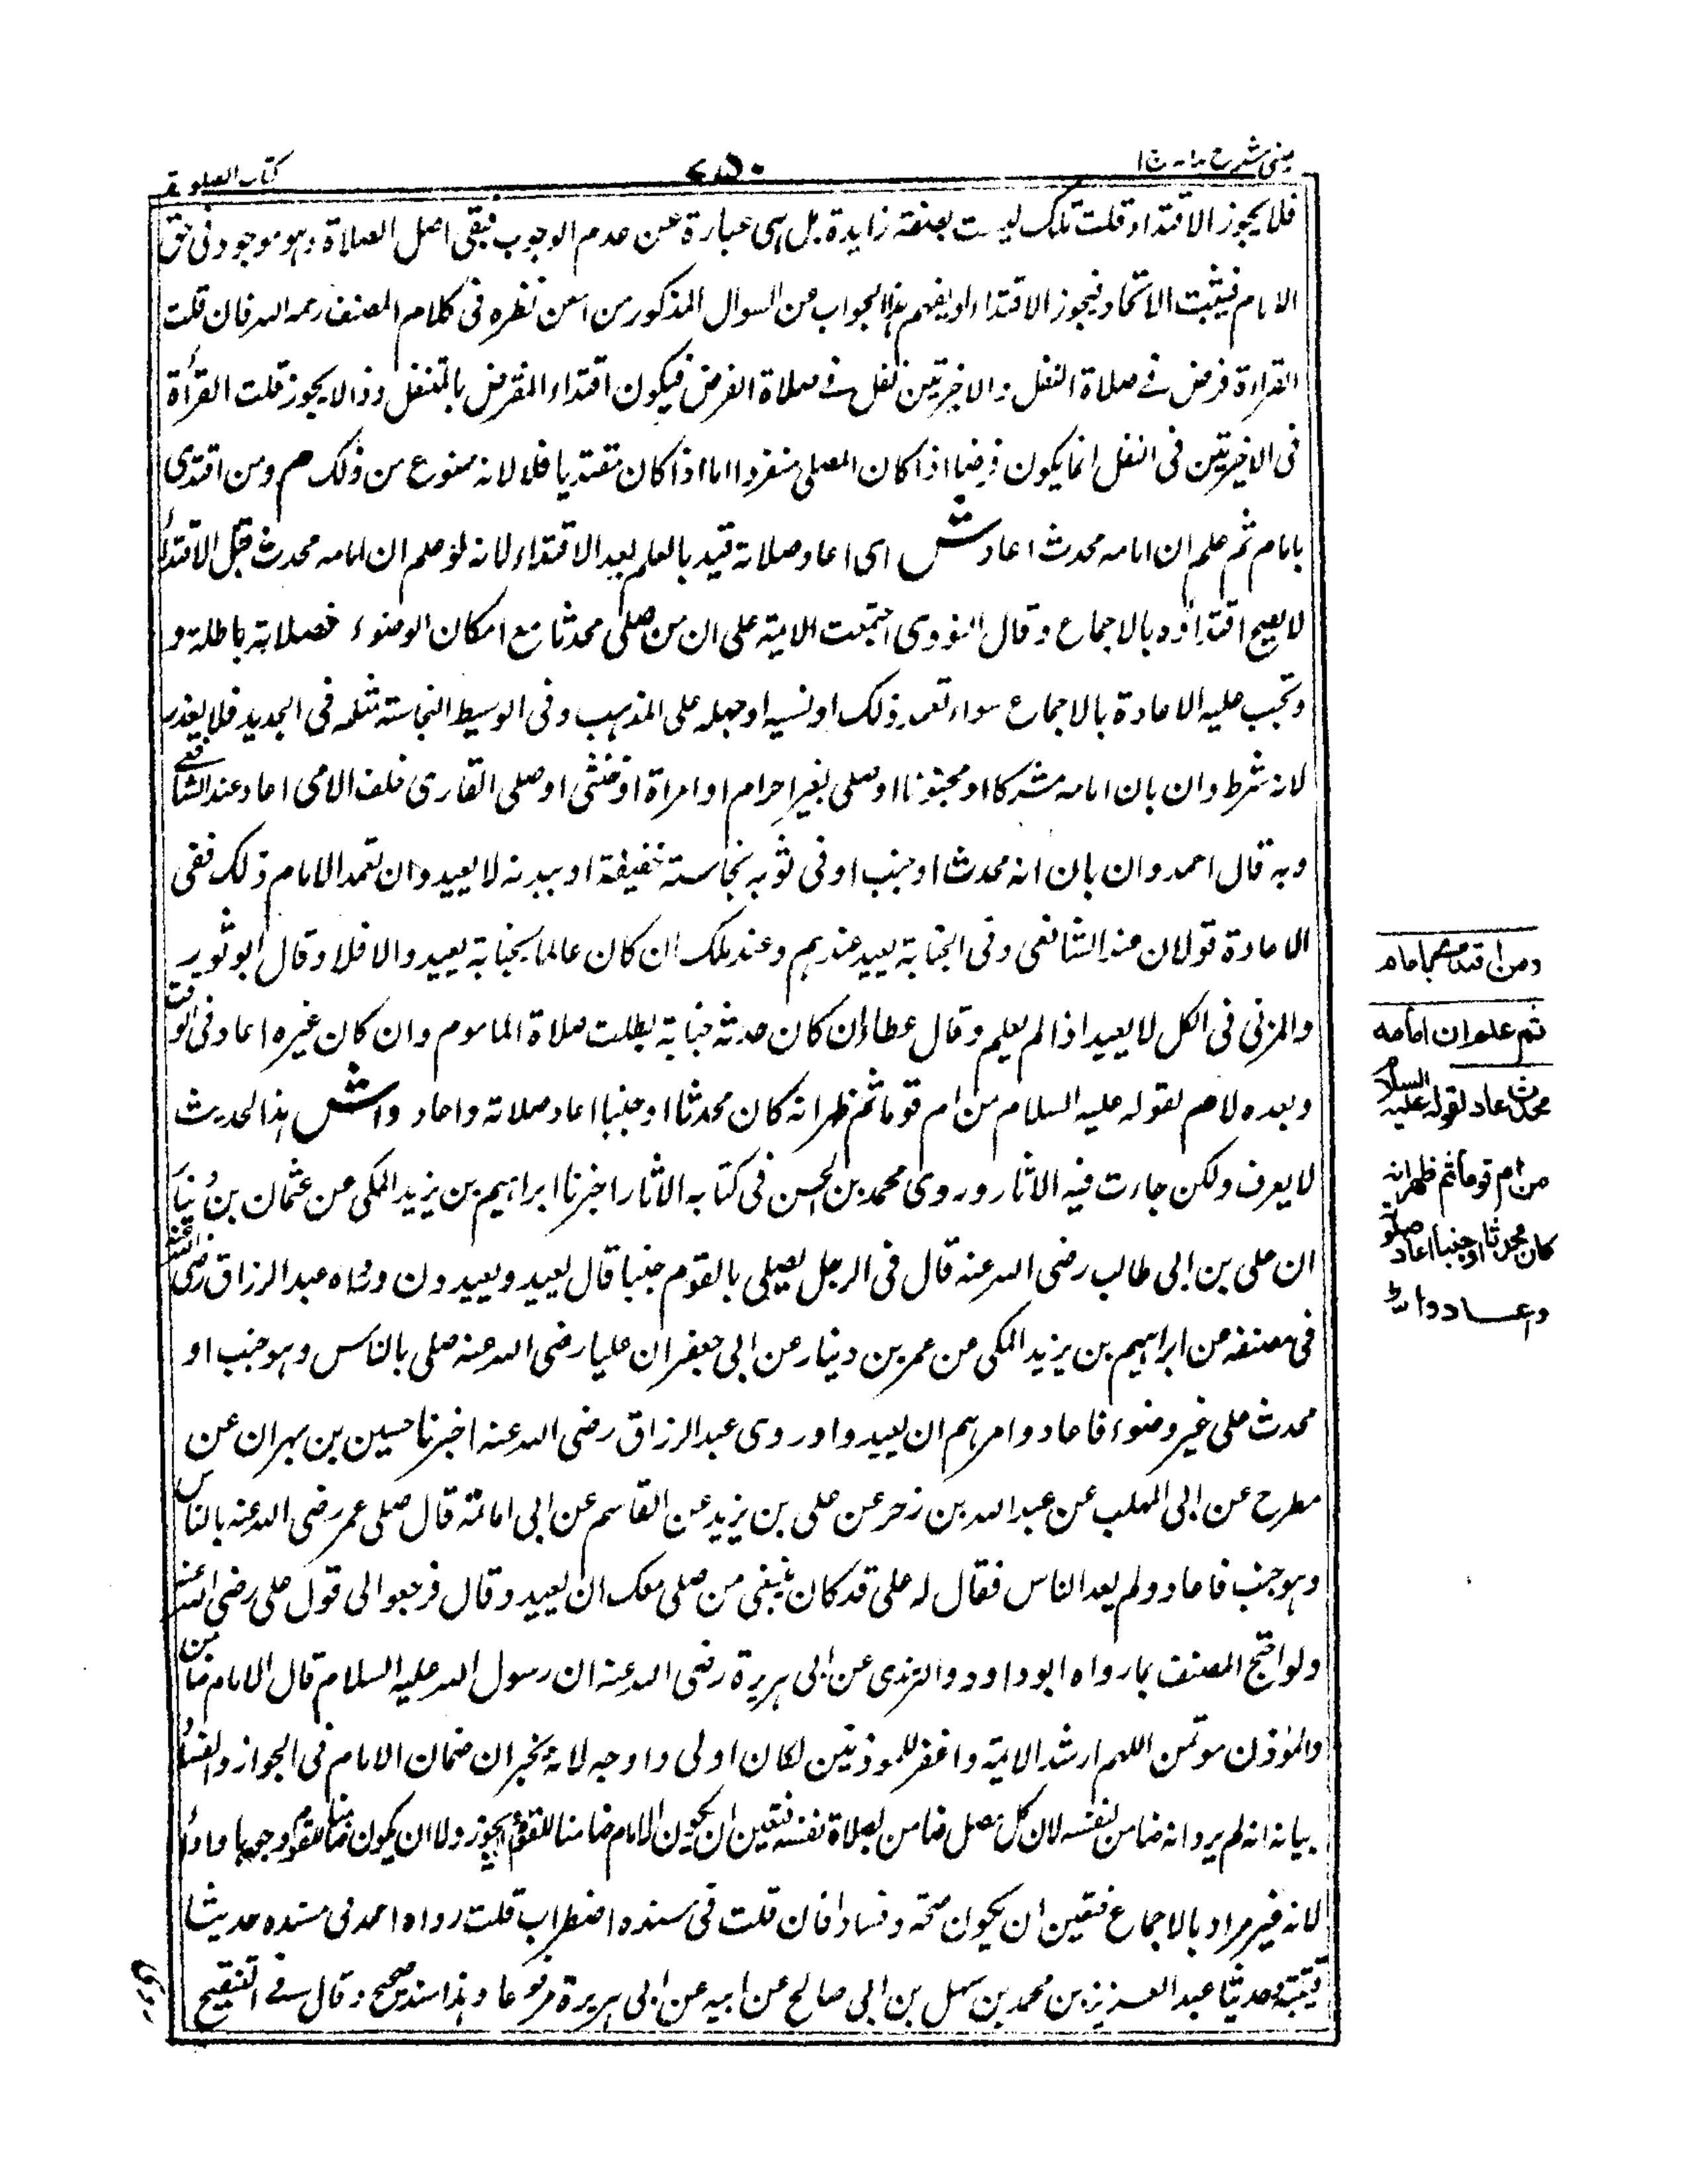 عینی شرح ہدایہ ج ا
۷۵۰
کتاب الصلوۃ
فلا يجوز الاقتداء قلت تلک ليست بصفة زايدة بل ہی عبارة عن عدم الوجوب فبقی اصل الصلاة وہو موجود فی حق
الامام فيثبت الاتحاد فيجوز الاقتداء او يفهم ہذا الجواب من السوال المذكور من امعن نظره فی كلام المصنف رحمه الله فان قلت
القراءة فرض فے صلاة النفل والاخرتين نفل فے صلاة الفرض فيكون اقتداء المفرض بالمتنفل وذا لا يجوز قلت القرأة
فی الاخيرتين فی النفل انما يكون فرضا اذا كان المصلی منفردا اما اذا كان مقتديا فلا لانه ممنوع من ذلک م ومن اقتدی
بامام ثم علم ان امامه محدث اعاد ش ای اعاد صلاته قيد بالعلم بعد الاقتداء لانه لو علم ان امامه محدث قبل الاقتداء
لا يصح اقتداؤه بالاجماع وقال النووی اجتمعت الامة علی ان من صلی محدثا مع امكان الوضوء فصلاته باطلة و
وتجب عليه الاعادة بالاجماع سواء تعمد ذلک او نسيه او جهله علی المذہب وفی الوسيط النجاسة مثله فی الجديد فلا يعذر
لانه شرط وان بان امامه مشركا او مجنونا او صلی بغير احرام او امراة او خنثی او صلی القاری خلف الامی اعاد عند الشافعے
وبه قال احمد وان بان انه محدث او جنب او فی ثوبه نجاسة خفيفة او ببدنه لا يعيد وان تعمد الامام ذلک ففی
الاعادة قولان عند الشافعی وفی الجنابة يعيد عندہم وعند ملک ان كان عالما بجنابة يعيد والا فلا وقال ابو ثور
والمزنی فی الكل لا يعيد اذا لم يعلم وقال عطا ان كان حدثه جنابة بطلت صلاة الماموم وان كان غيره اعاد فی الوقت
وبعده لا م لقوله عليه السلام من ام قوما ثم ظهر انه كان محدثا او جنبا اعاد صلاته واعادوا ش ہذا الحديث
لا يعرف ولكن جاءت فيه الاثار وروی محمد بن الحسن فی كتابه الاثار اخبرنا ابراہيم بن يزيد المكی عن عثمان بن دينار
ان علی بن ابی طالب رضی الله عنه قال فی الرجل يصلی بالقوم جنبا قال يعيد ويعيدون ورواه عبد الرزاق رضی الله عنه
فی مصنفه عن ابراہيم بن يزيد المكی عن عمر بن دينار عن ابی جعفر ان عليا رضی الله عنه صلی بالناس وہو جنب او
محدث علی غير وضوء فاعاد وامرہم ان يعيدوا وروی عبد الرزاق رضی الله عنه اخبرنا حسين بن مہران عن
مطرح عن ابی المهلب عن عبد الله بن زحر عن علی بن يزيد عن القاسم عن ابی امامة قال صلی عمر رضی الله عنه بالناس
وہو جنب فاعاد ولم يعد الناس فقال له علی قد كان ينبغی من صلی معک ان يعيد وقال فرجعوا الی قول علی رضی الله عنه
ولو احتج المصنف بما رواه ابو داود والترمذی عن ابی ہريرة رضی الله عنه ان رسول الله عليه السلام قال الامام ضامن
والموذن موتمن اللهم ارشد الايمة واغفر للموذنين لكان اولی واوجه لانه يخبر ان ضمان الامام فی الجواز والفساد
بيانه انه لم يرد انه ضامن لنفسه لان كل مصل ضامن لصلاة نفسه فتعين ان يكون الامام ضامنا للقوم يجوز ولا ان يكون ضامنا للقوم وجوبا واداء
لانه غير مراد بالاجماع فتعين ان يكون صحة وفسادا فان قلت فی سنده اضطراب قلت رواه احمد فی مسنده حديثا
قتيبة وحدثنا عبد العزيز بن محمد بن سهل بن ابی صالح عن ابيه عن ابی ہريرة مرفوعا وہذا سند صحيح وقال فے التنقيح
ومن اقتدى بامام
ثم علم ان امامه
محدث اعاد لقوله عليه السلام
من ام قوما ثم ظهر انه
كان محدثا او جنبا اعاد صلوته
واعادوا ش